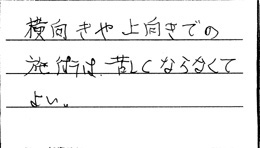 横向きや上向きでの
施行は苦しくならなくて
よい。